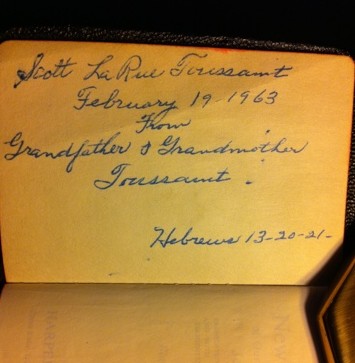 Scott LaRue Toussaint
February 19-1963
From
Grandfather & Grandmother
Toussaint.
Hebrews 13-20-21-